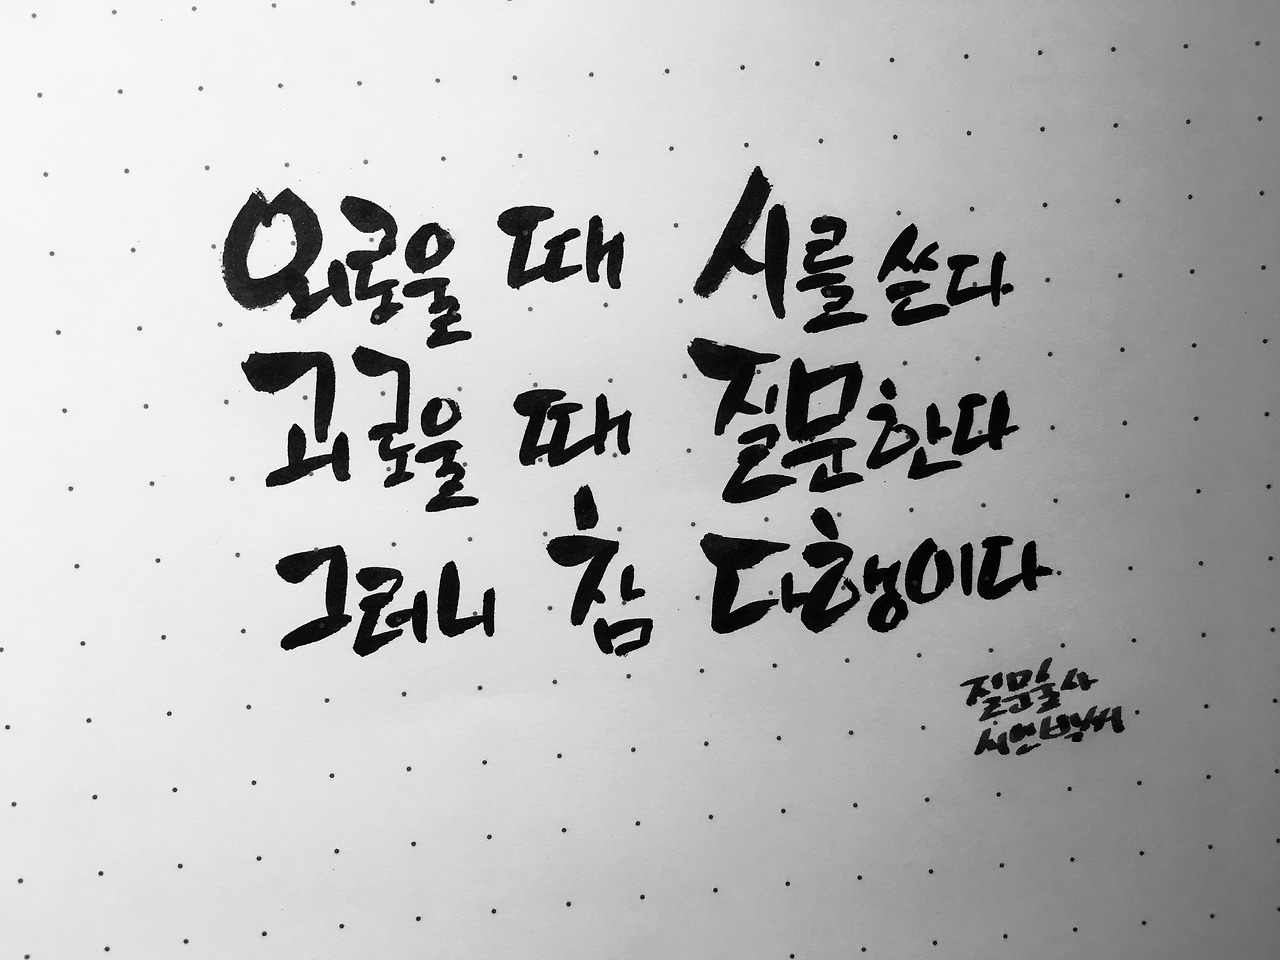 외로울 때 시를 쓴다
괴로울 때 질문한다
그러니 참 다행이다
질문술사
시인박씨